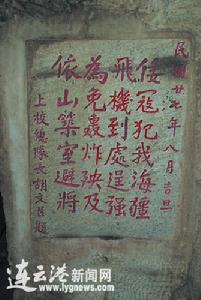 民國廿七年八月吉旦
倭寇犯我海疆
飛機到處逞强
為免轟炸殃及
依山築室避將
上校總隊長胡文臣題
连云港新闻网
www.lygnews.com